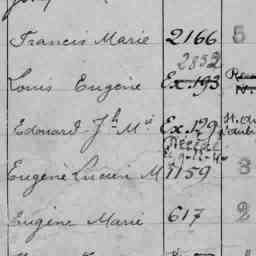 Francis Marie 2166 5
2832
Louis Eugène Ex.193
Edouard Jh Mie Ex.129
Décédé
Eugène Lucien M 1159 3
Eugène Marie 617 2